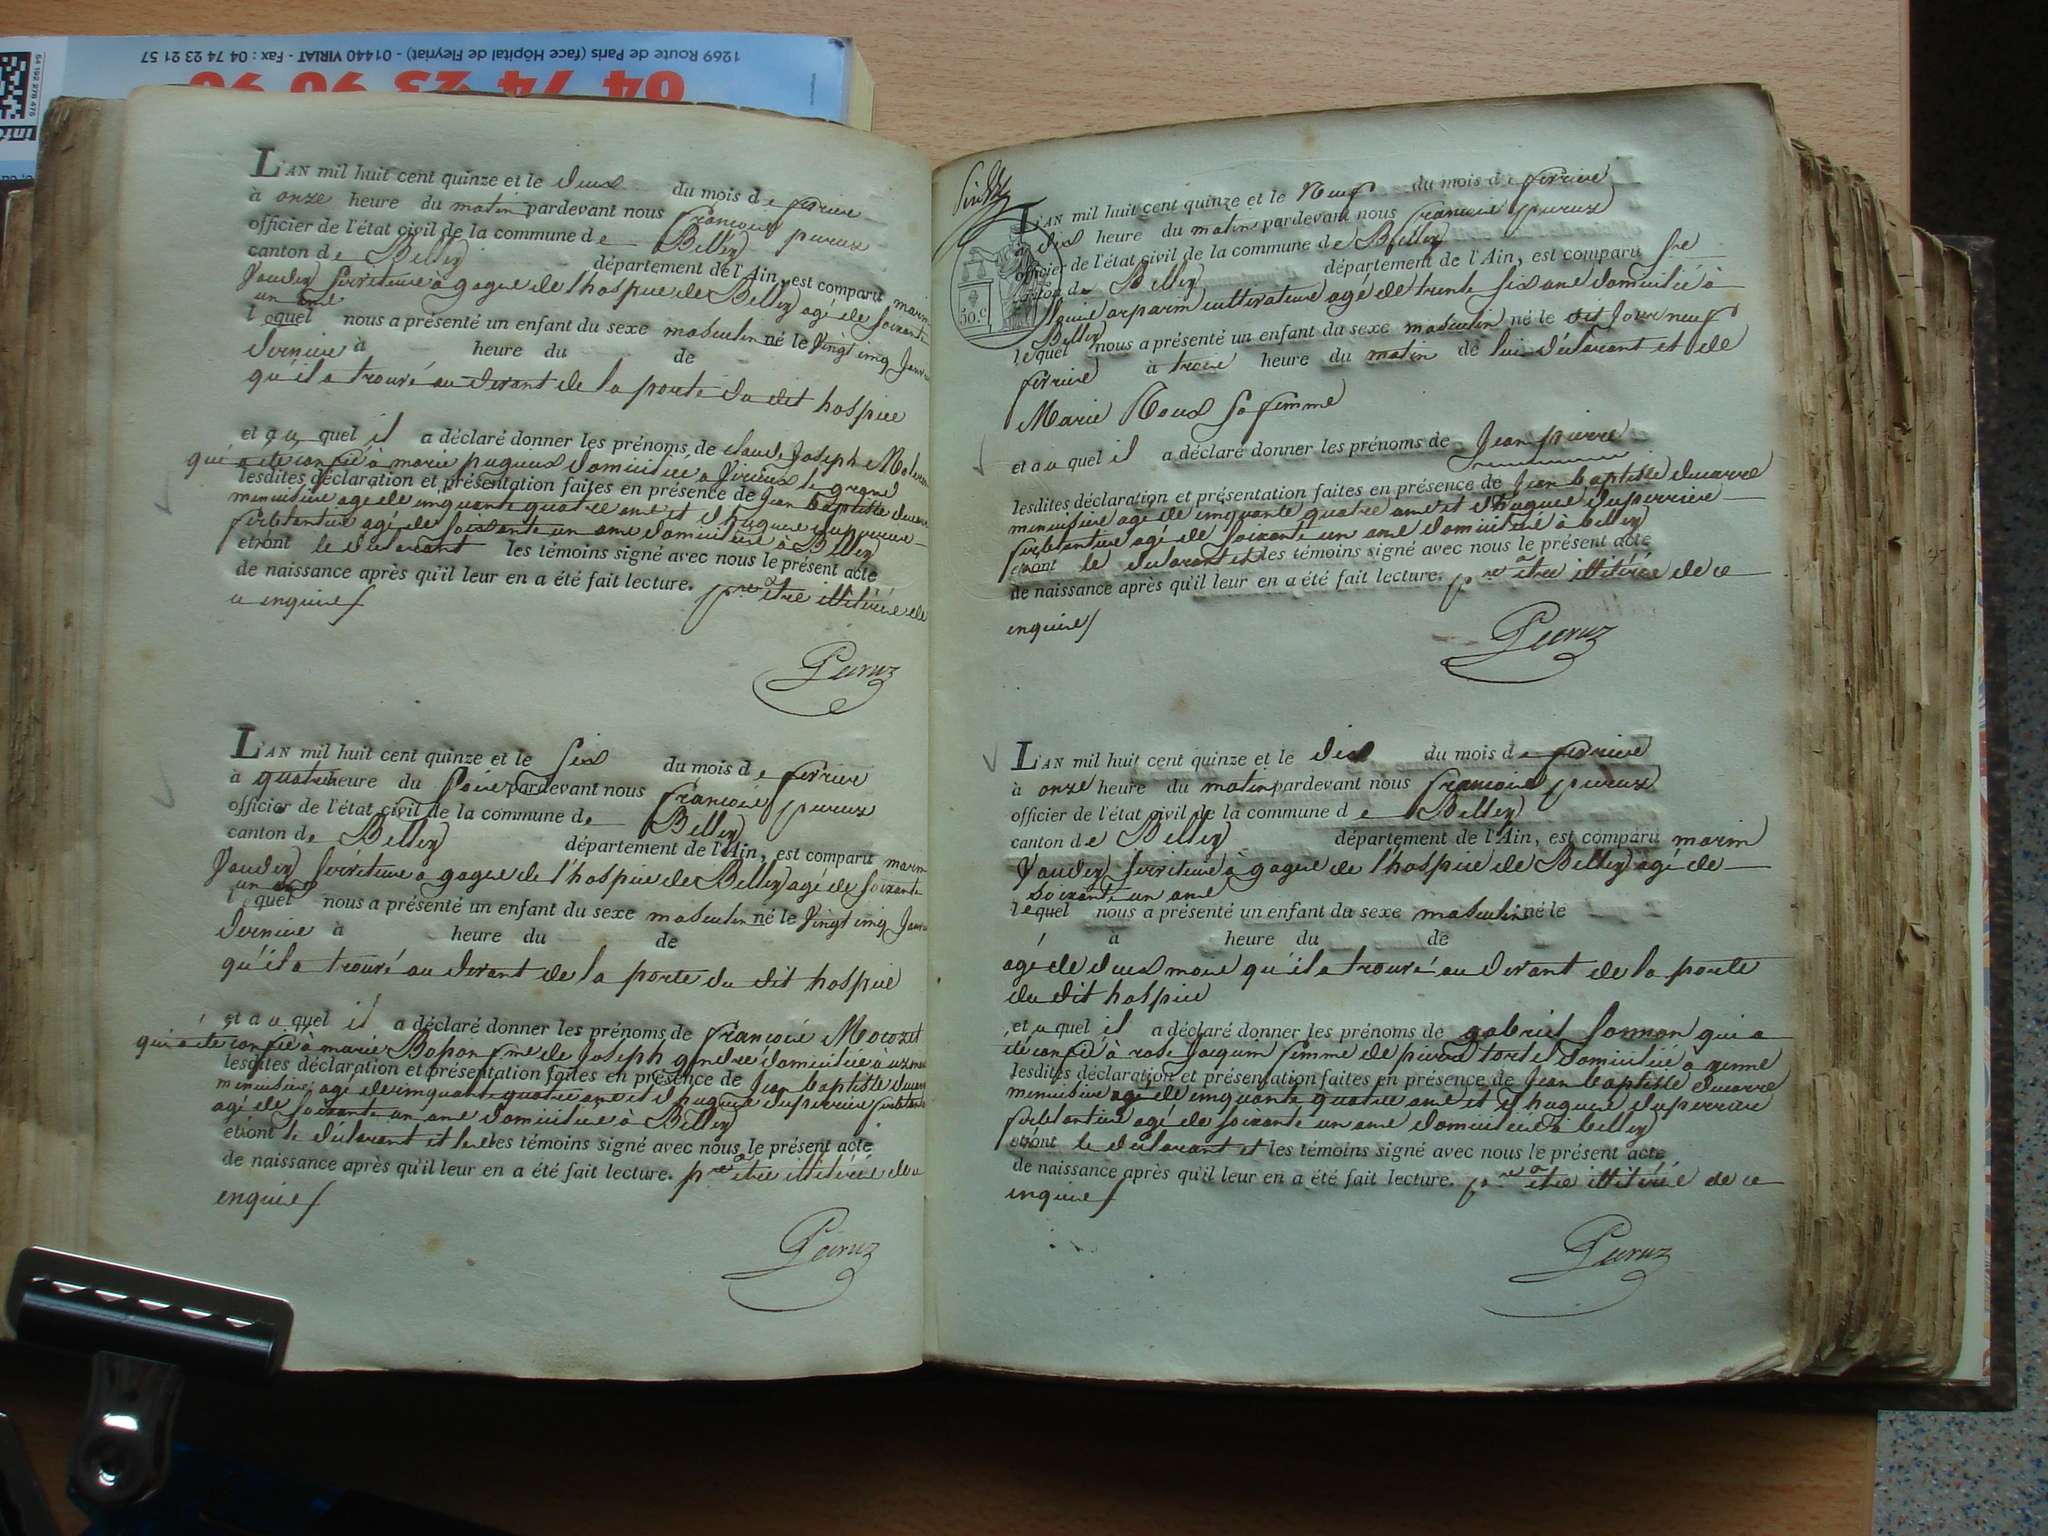 1269 Route de Paris (face Hôpital de Fleyriat) - 01440 VIRIAT - Fax : 04 74 23 21 57
04 74 23 90 90
L'AN mil huit cent quinze et le deux du mois de fevrier
à onze heure du matin pardevant nous françois peruz
officier de l'état civil de la commune de Belley
canton de Belley département de l'Ain, est comparu marin
serviteur à gage de l'hospice de Belley agé de soixante
un ans
lequel nous a présenté un enfant du sexe masculin né le vingt cinq Janvier
dernier à heure du de
qu'il a trouvé au devant de la porte du dit hospice
et auquel il a déclaré donner les prénoms de claude Joseph
qui a été confié à marie domiciliée à virieux le grand
lesdites déclaration et présentation faites en présence de Jean baptiste
menuisier agé de cinquante quatre ans et d'hugues duperrier
agé de soixante un ans domiciliés à Belley
et ont le déclarant les témoins signé avec nous le présent acte
de naissance après qu'il leur en a été fait lecture. pre être illitérés de
ce enquis
Peruz
L'AN mil huit cent quinze et le six du mois de fevrier
à quatre heure du soir pardevant nous françois peruz
officier de l'état civil de la commune de Belley
canton de Belley département de l'Ain, est comparu marin
serviteur à gage de l'hospice de Belley agé de soixante
un ans
lequel nous a présenté un enfant du sexe masculin né le vingt cinq Janvier
dernier à heure du de
qu'il a trouvé au devant de la porte du dit hospice
et auquel il a déclaré donner les prénoms de françois Mocozet
qui a été confié à marie Bohon fme de Joseph gindre domiciliée à
lesdites déclaration et présentation faites en présence de Jean baptiste
menuisier agé de cinquante quatre ans et d'hugues duperrier
agé de soixante un ans domiciliés à Belley
et ont le déclarant et les témoins signé avec nous le présent acte
de naissance après qu'il leur en a été fait lecture. pre être illitérés de ce
enquis
Peruz
50.c
L'AN mil huit cent quinze et le Neuf du mois de fevrier
à dix heure du matin pardevant nous françois peruz
officier de l'état civil de la commune de Belley
canton de Belley département de l'Ain, est comparu Sre
Louis arparin cultivateur agé de trente six ans domicilié à
Belley
lequel nous a présenté un enfant du sexe masculin né le dit jour neuf
fevrier à trois heure du matin de lui déclarant et de
Marie Roux sa femme
et auquel il a déclaré donner les prénoms de Jean pierre
lesdites déclaration et présentation faites en présence de Jean baptiste ducarre
menuisier agé de cinquante quatre ans et d'hugues duperrier
agé de soixante un ans domiciliés à belley
et ont le déclarant et les témoins signé avec nous le présent acte
de naissance après qu'il leur en a été fait lecture. pre être illitérés de ce
enquis
Peruz
L'AN mil huit cent quinze et le dix du mois de fevrier
à onze heure du matin pardevant nous françois peruz
officier de l'état civil de la commune de Belley
canton de Belley département de l'Ain, est comparu marin
serviteur à gage de l'hospice de Belley agé de
soixante un ans
lequel nous a présenté un enfant du sexe masculin né le
à heure du de
agé de deux mois qu'il a trouvé au devant de la porte
du dit hospice
et auquel il a déclaré donner les prénoms de gabriel Sonnon qui a
été confié à rose Jacquin femme de pierre tortel domiciliée à
lesdites déclaration et présentation faites en présence de Jean baptiste ducarre
menuisier agé de cinquante quatre ans et d'hugues duperrier
agé de soixante un ans domiciliés à belley
et ont le déclarant et les témoins signé avec nous le présent acte
de naissance après qu'il leur en a été fait lecture. pre être illitérés de ce
enquis
Peruz